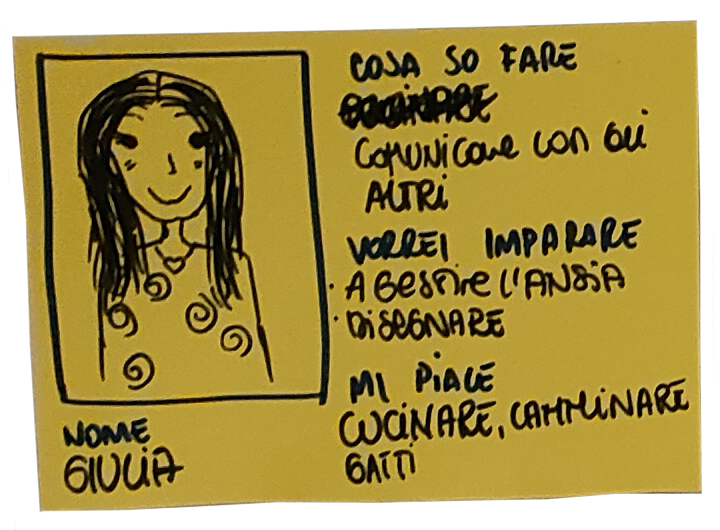 COSA SO FARE
COMUNICARE CON GLI
ALTRI
VORREI IMPARARE
· A GESTIRE L'ANSIA
· DISEGNARE
MI PIACE
CUCINARE, CAMMINARE
GATTI
NOME
GIULIA